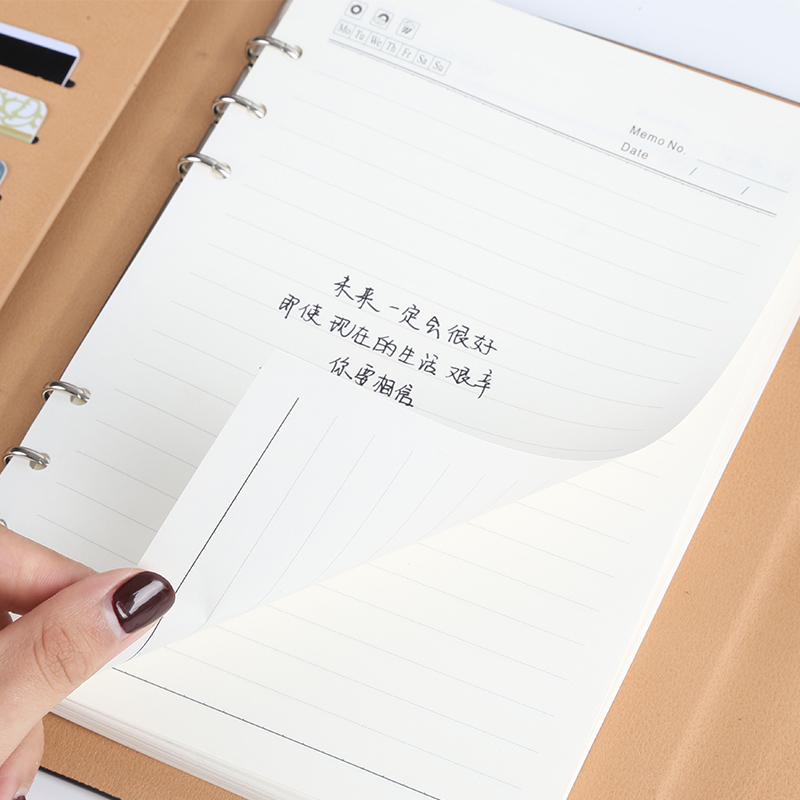 Mo Tu We Th Fr Sa Su
Memo No.
Date / /
未来一定会很好
即使现在的生活艰辛
你要相信